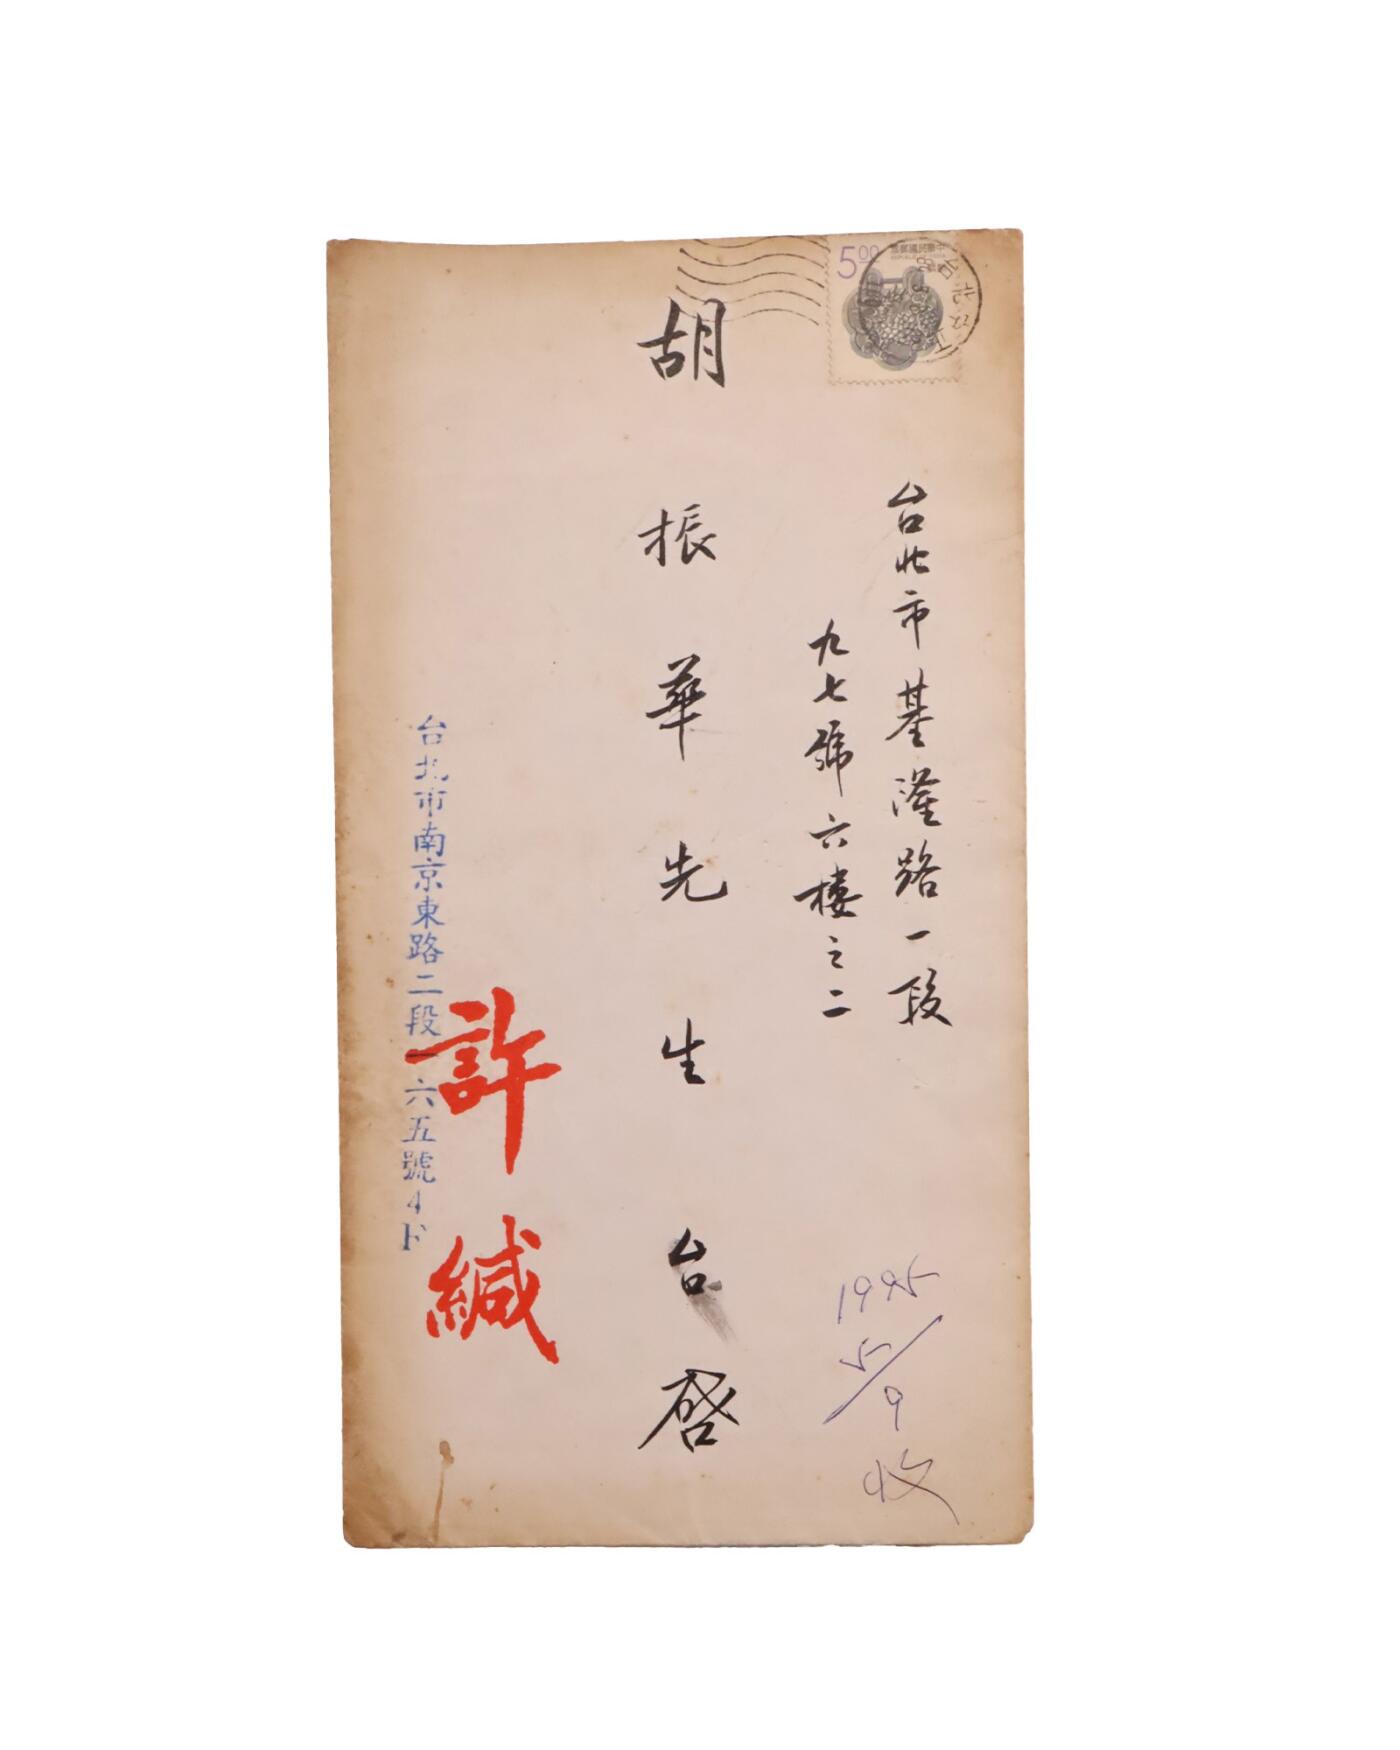 5.00
中華民國郵票
REPUBLIC OF CHINA
台北
台北市基隆路一段
九七號六樓之二
胡振華先生台啓
許緘
台北市南京東路二段一六五號4F
1995
5/9
收